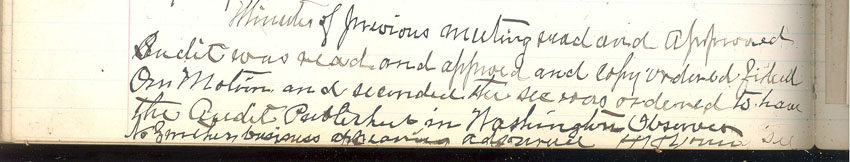 Minutes of previous meeting read and Approved
Audit was read and approved and copy ordered filed
On Motion and seconded the sec was ordered to have
the Audit Publishet in Washington Observer
No further business appearing adjourned H H Young Sec